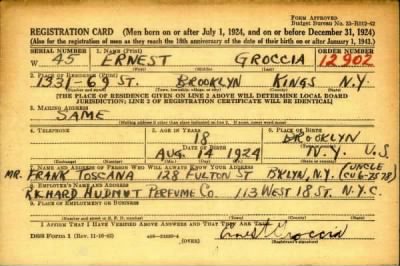 FORM APPROVED
Budget Bureau No. 33-R012-42
REGISTRATION CARD (Men born on or after July 1, 1924, and on or before December 31, 1924)
(Also for the registration of men as they reach the 18th anniversary of the date of their birth on or after January 1, 1943.)
SERIAL NUMBER 1. NAME (Print) ORDER NUMBER
W 45 ERNEST GROCCIA 12902
(First) (Middle) (Last)
2. PLACE OF RESIDENCE (Print)
1331-69 ST. BROOKLYN KINGS N.Y.
[THE PLACE OF RESIDENCE GIVEN ON LINE 2 ABOVE WILL DETERMINE LOCAL BOARD
JURISDICTION; LINE 2 OF REGISTRATION CERTIFICATE WILL BE IDENTICAL]
3. MAILING ADDRESS
SAME
4. TELEPHONE 5. AGE IN YEARS 6. PLACE OF BIRTH
18 BROOKLYN
DATE OF BIRTH
AUG 1924 N.Y. U.S.
7. NAME AND ADDRESS OF PERSON WHO WILL ALWAYS KNOW YOUR ADDRESS UNCLE
MR. FRANK TOSCANA 128 FULTON ST BKLYN, N.Y.
8. EMPLOYER'S NAME AND ADDRESS
RICHARD HUDNUT PERFUME CO. 113 WEST 18 ST. N.Y.C.
9. PLACE OF EMPLOYMENT OR BUSINESS
I AFFIRM THAT I HAVE VERIFIED ABOVE ANSWERS AND THAT THEY ARE TRUE.
DSS Form 1 (Rev. 11-16-42) (OVER) Ernest Groccia
(Registrant's signature)